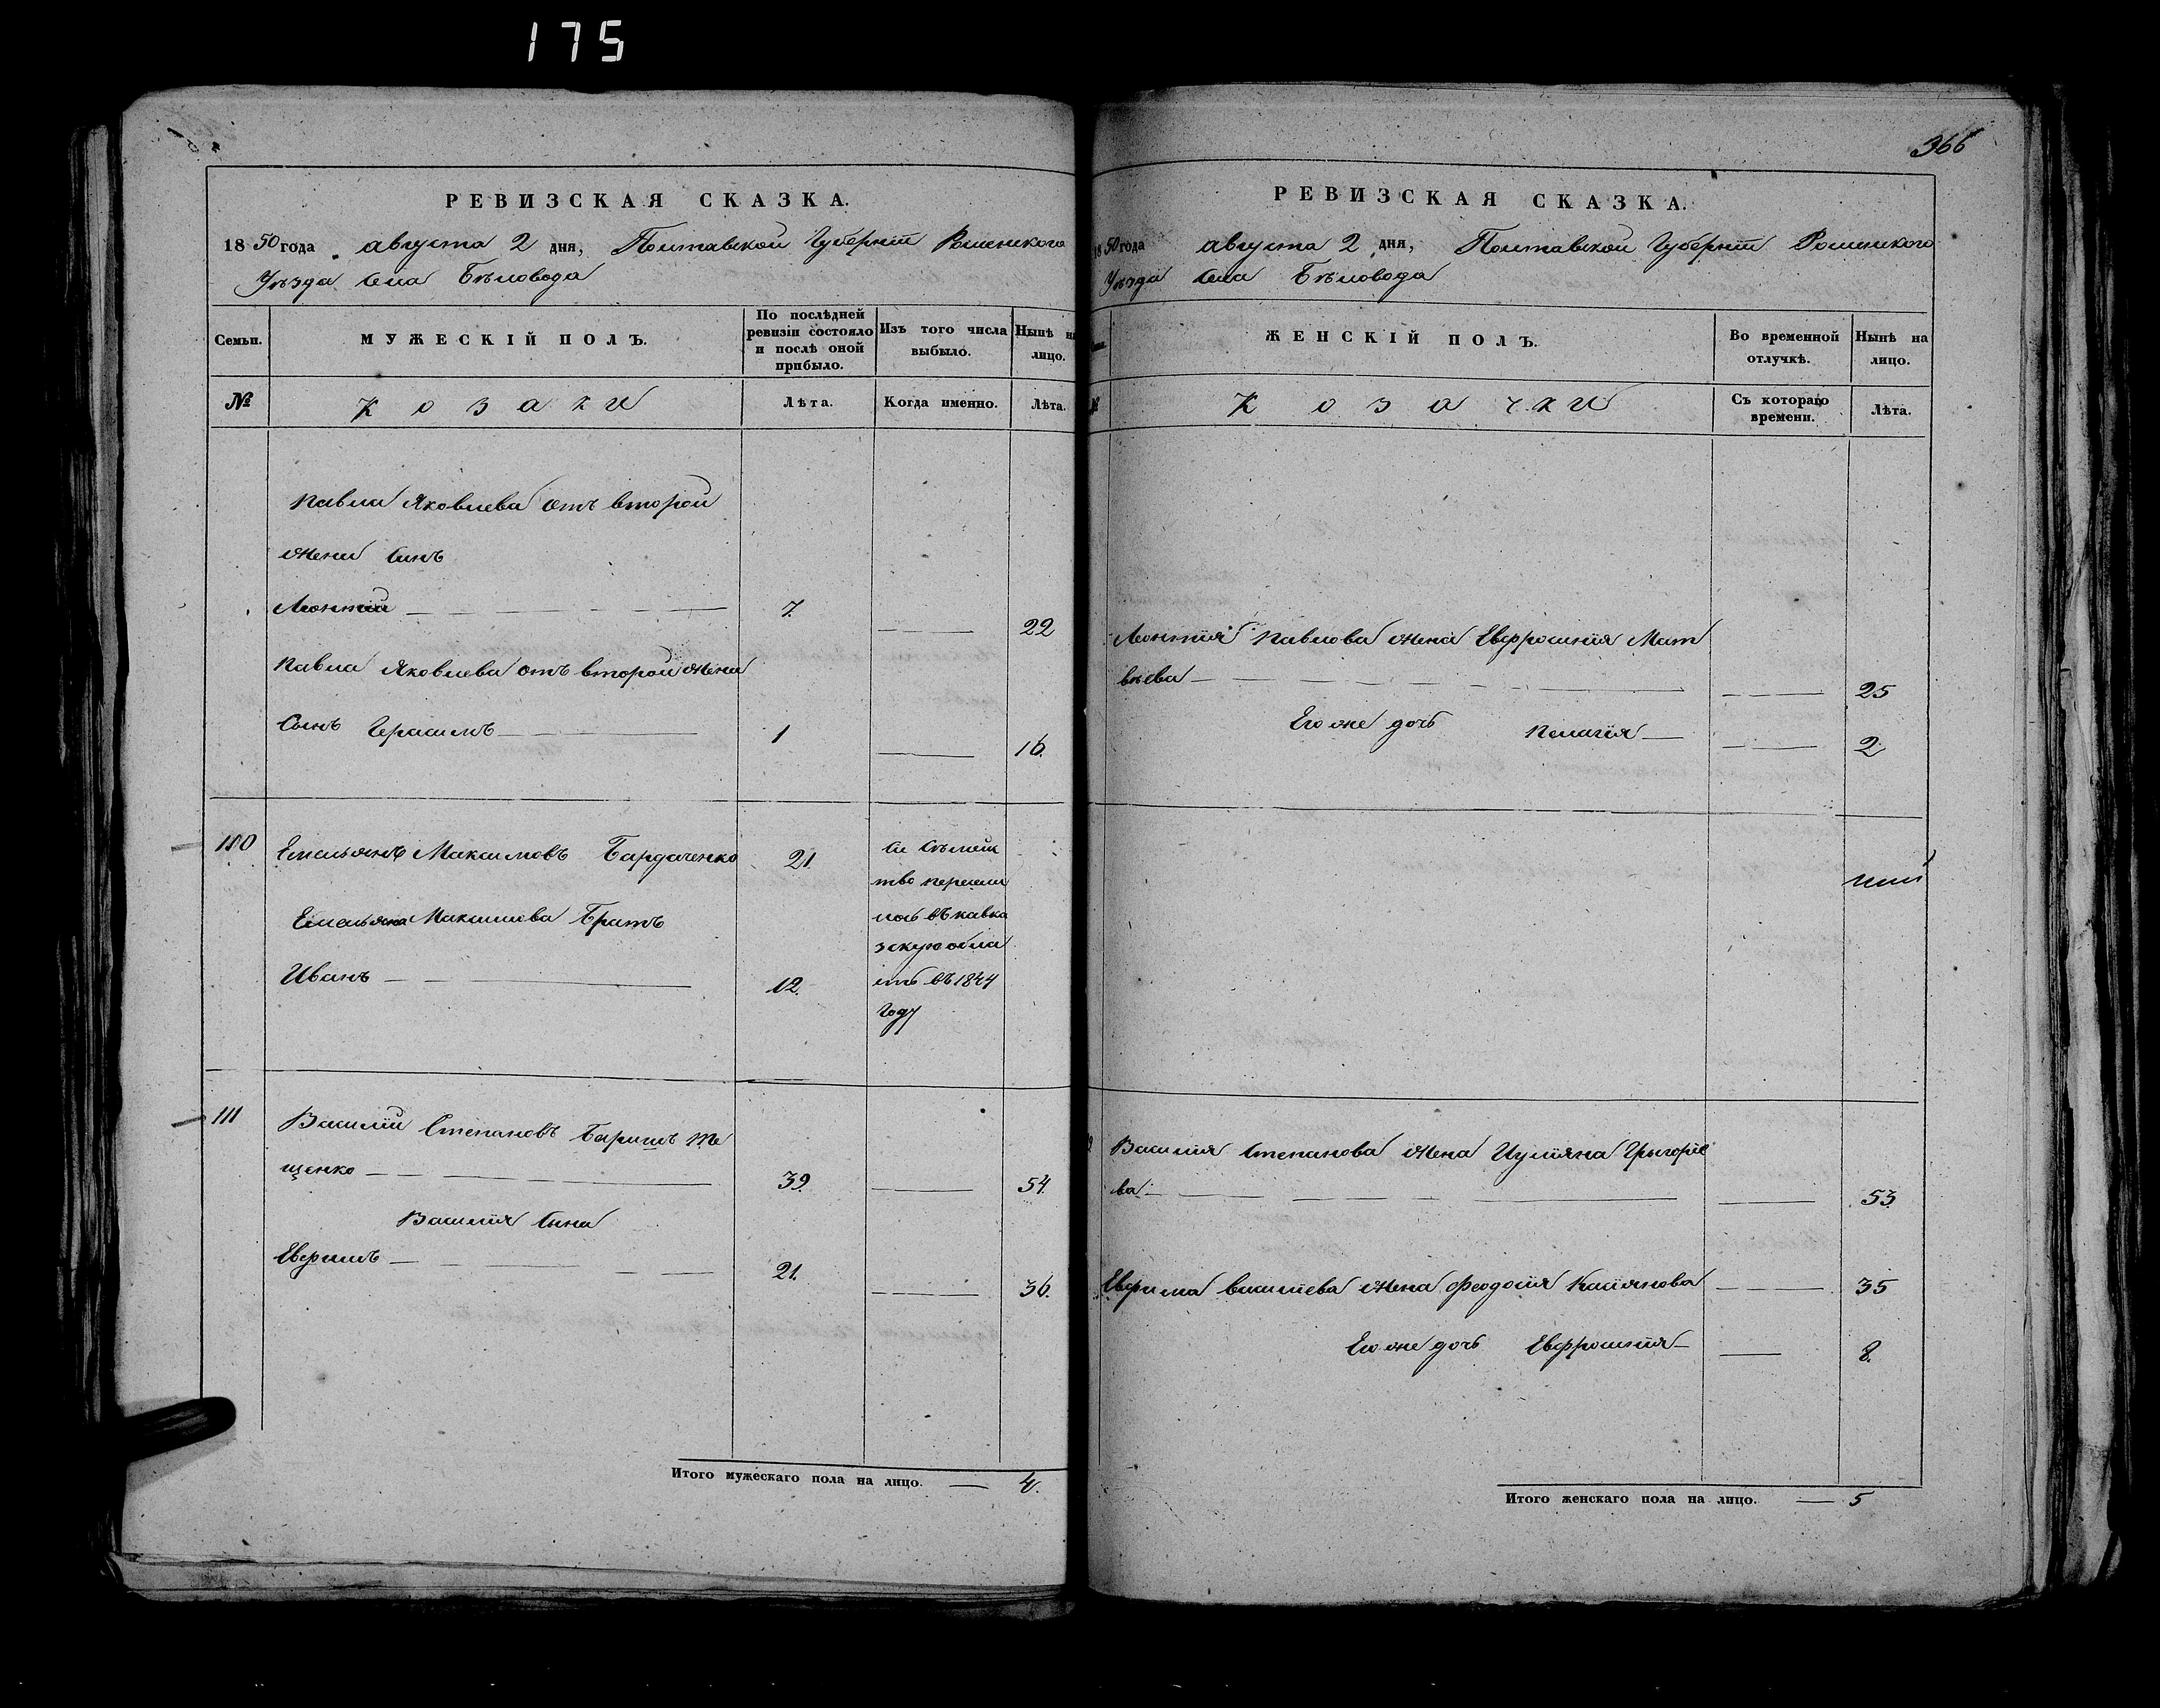 175
РЕВИЗСКАЯ СКАЗКА.
1850 года августа 2 дня, Полтавской Губерніи Роменского
Уѣзда Села Бѣловода
Семьи.
МУЖЕСКІЙ ПОЛЪ.
По послѣдней ревизіи состояло и послѣ оной прибыло.
Изъ того числа выбыло.
Нынѣ на лицо.
№
Козаки
Лѣта.
Когда именно.
Лѣта.
Павла Яковлева отъ второй
жени синъ
Леонтій 7. 22
Павла Яковлева отъ второй жени
Сынъ Герасимъ 1 16.
110 Емельянъ Максимовъ Бардаченко 21
Емельяна Максимова Братъ
Иванъ 12.
Си Сѣмейс
тво пересели
лось въ кавка
зскую обла
сть въ 1844
Году
111 Василій Степановъ
щенко 39. 54.
Василія Сына
Евфимъ 21. 36.
Итого мужескаго пола на лицо. 4.
366
РЕВИЗСКАЯ СКАЗКА.
1850 года августа 2 дня, Полтавской Губерніи Роменского
Уѣзда Села Бѣловода
ЖЕНСКІЙ ПОЛЪ.
Во временной отлучкѣ.
Нынѣ на лицо.
№
Козачки
Съ котораго времени.
Лѣта.
Леонтія Павлова жена Евфросинія Мат
вѣева 25
Его же дочь Пелагія 2.
Василія Степанова жена Иуліяна Григоріе
ва 53
Евфима василіева жена Феодосія Касіянова 35
Его же дочь Евфросинія 8.
Итого женскаго пола на лицо. 5